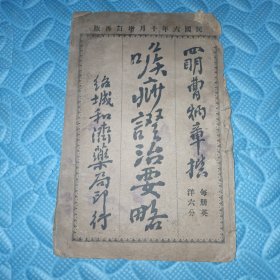 民國六年十月增訂再版
四明曹炳章撰
每册英洋六分
喉痧證治要略
紹城和濟藥局印行